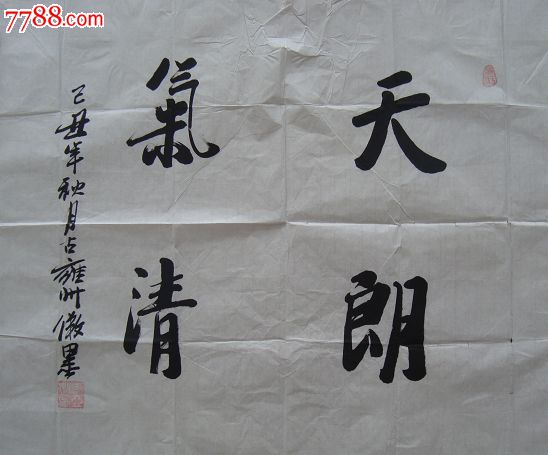 7788.com
天朗
氣清
己丑年秋月古雍州傲墨